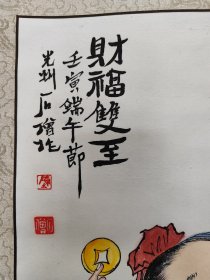 財福雙至
壬寅端午節
光州石增作